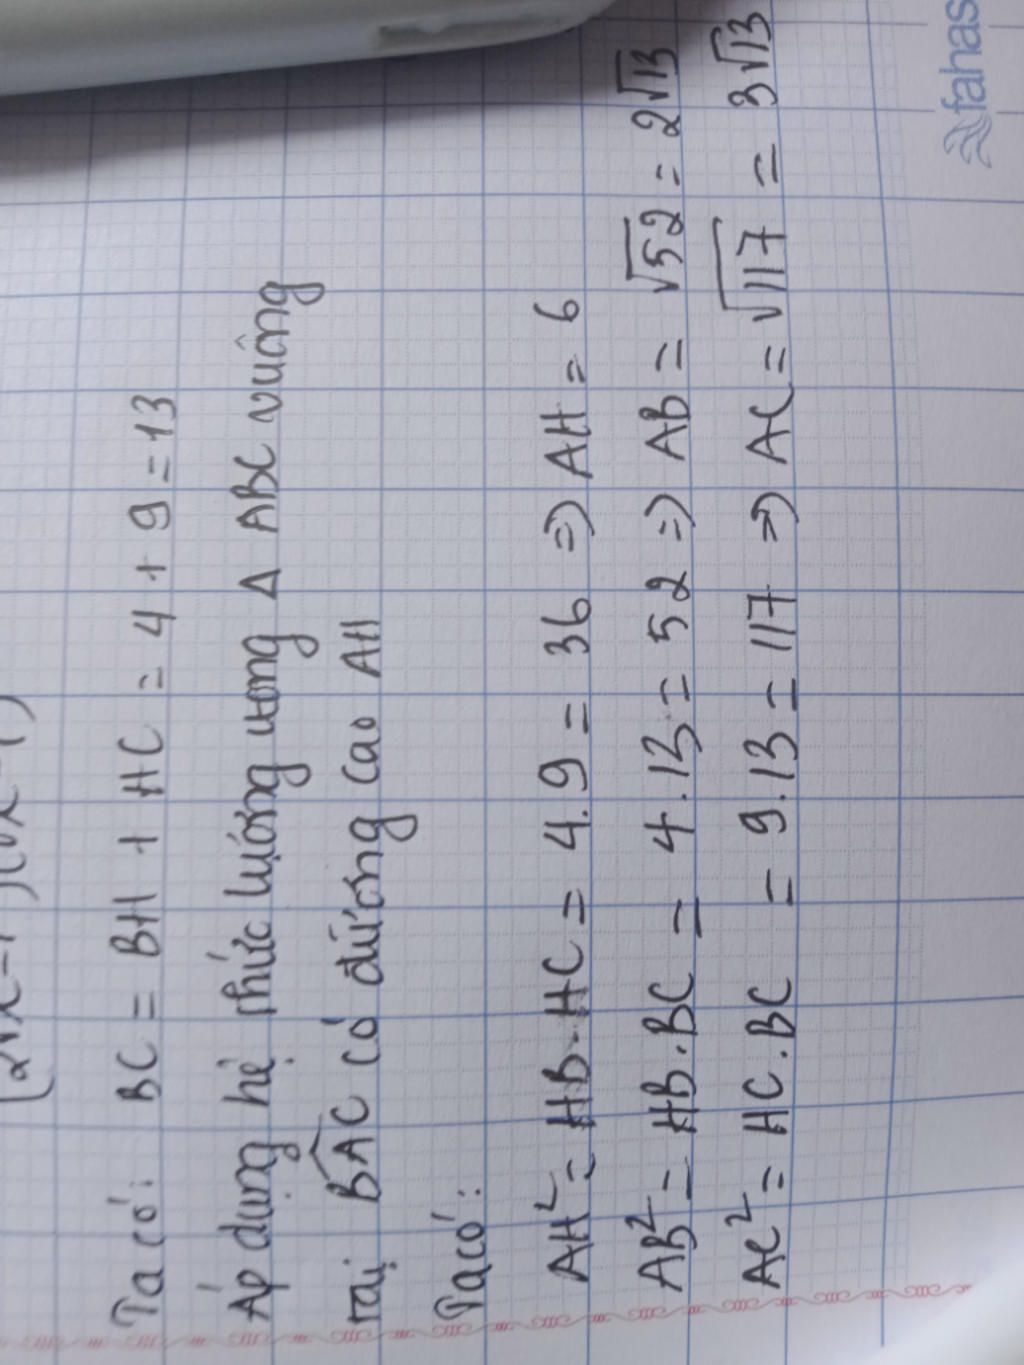 Ta có: BC = BH + HC = 4 + 9 = 13
Áp dụng hệ thức lượng trong Δ ABC vuông
tại BAC có đường cao AH
Ta có:
AH² = HB.HC = 4.9 = 36 => AH = 6
AB² = HB.BC = 4.13 = 52 => AB = √52 = 2√13
AC² = HC.BC = 9.13 = 117 => AC = √117 = 3√13
fahas